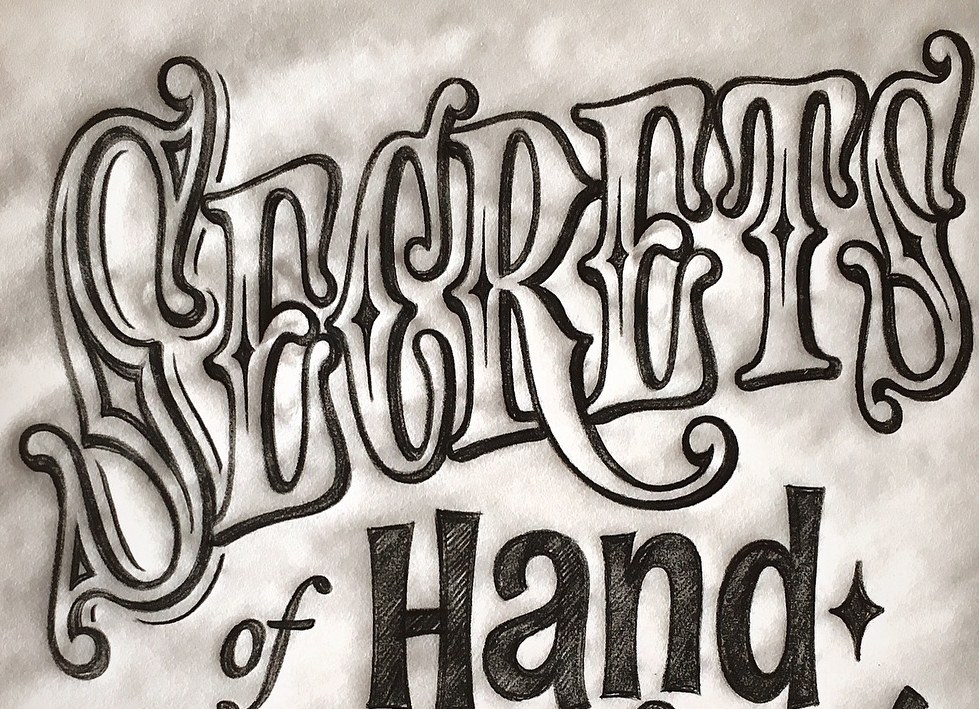 SECRETS
of Hand